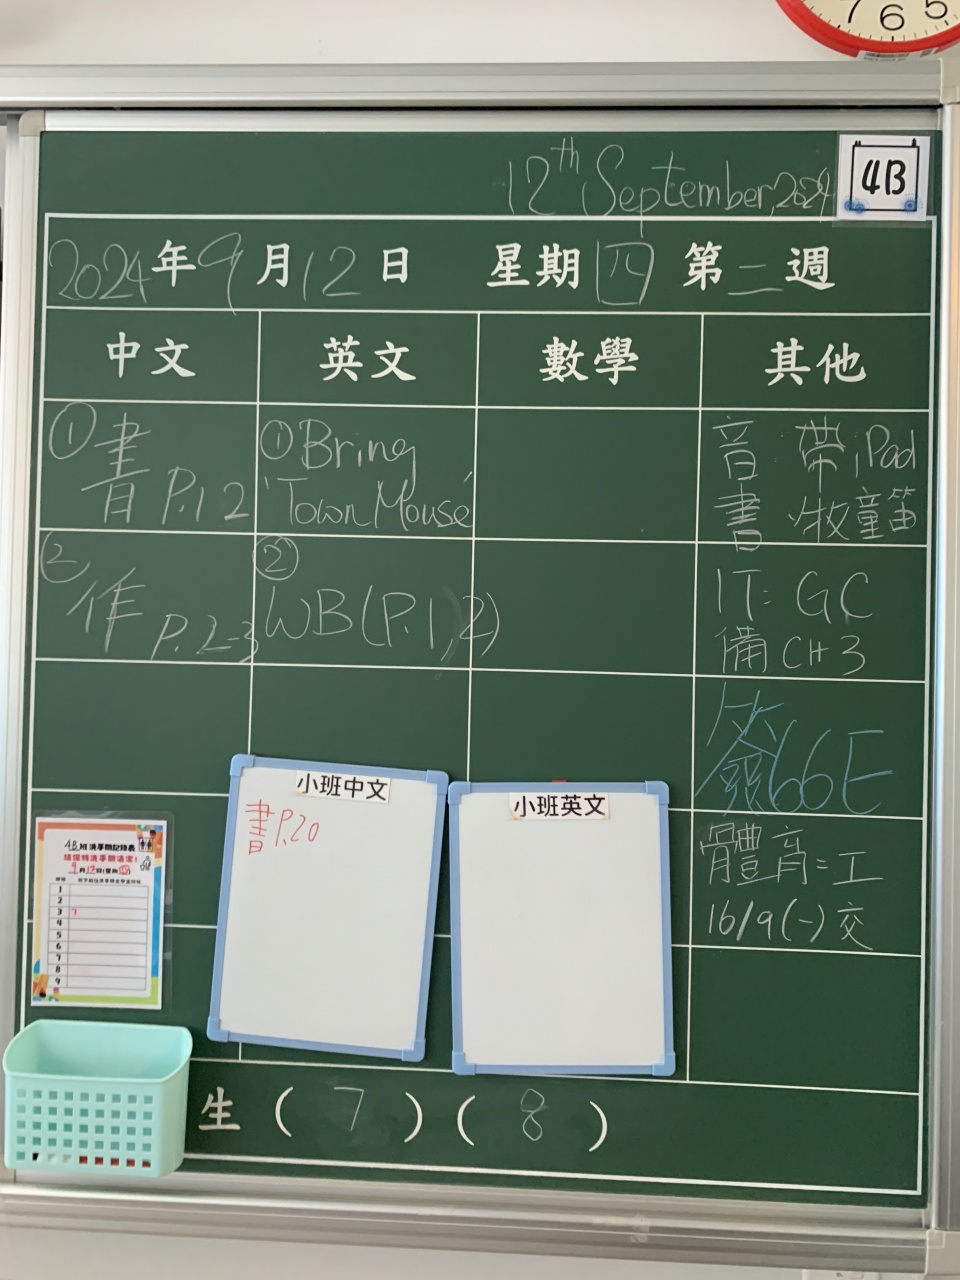 7 6 5
12th September, 2024
4B
2024年9月12日 星期四 第二週
中文 英文 數學 其他
①書 P.12
①Bring 'Town Mouse'
音:帶iPad
書:牧童笛
②作 P.2-3
②WB(P.1,2)
IT: GC
備CH3
簽66E
小班中文
書P.20
小班英文
體育=工
16/9(一)交
4B班洗手間記錄表
1
2
3 7
4
5
6
7
8
9
生(7)(8)